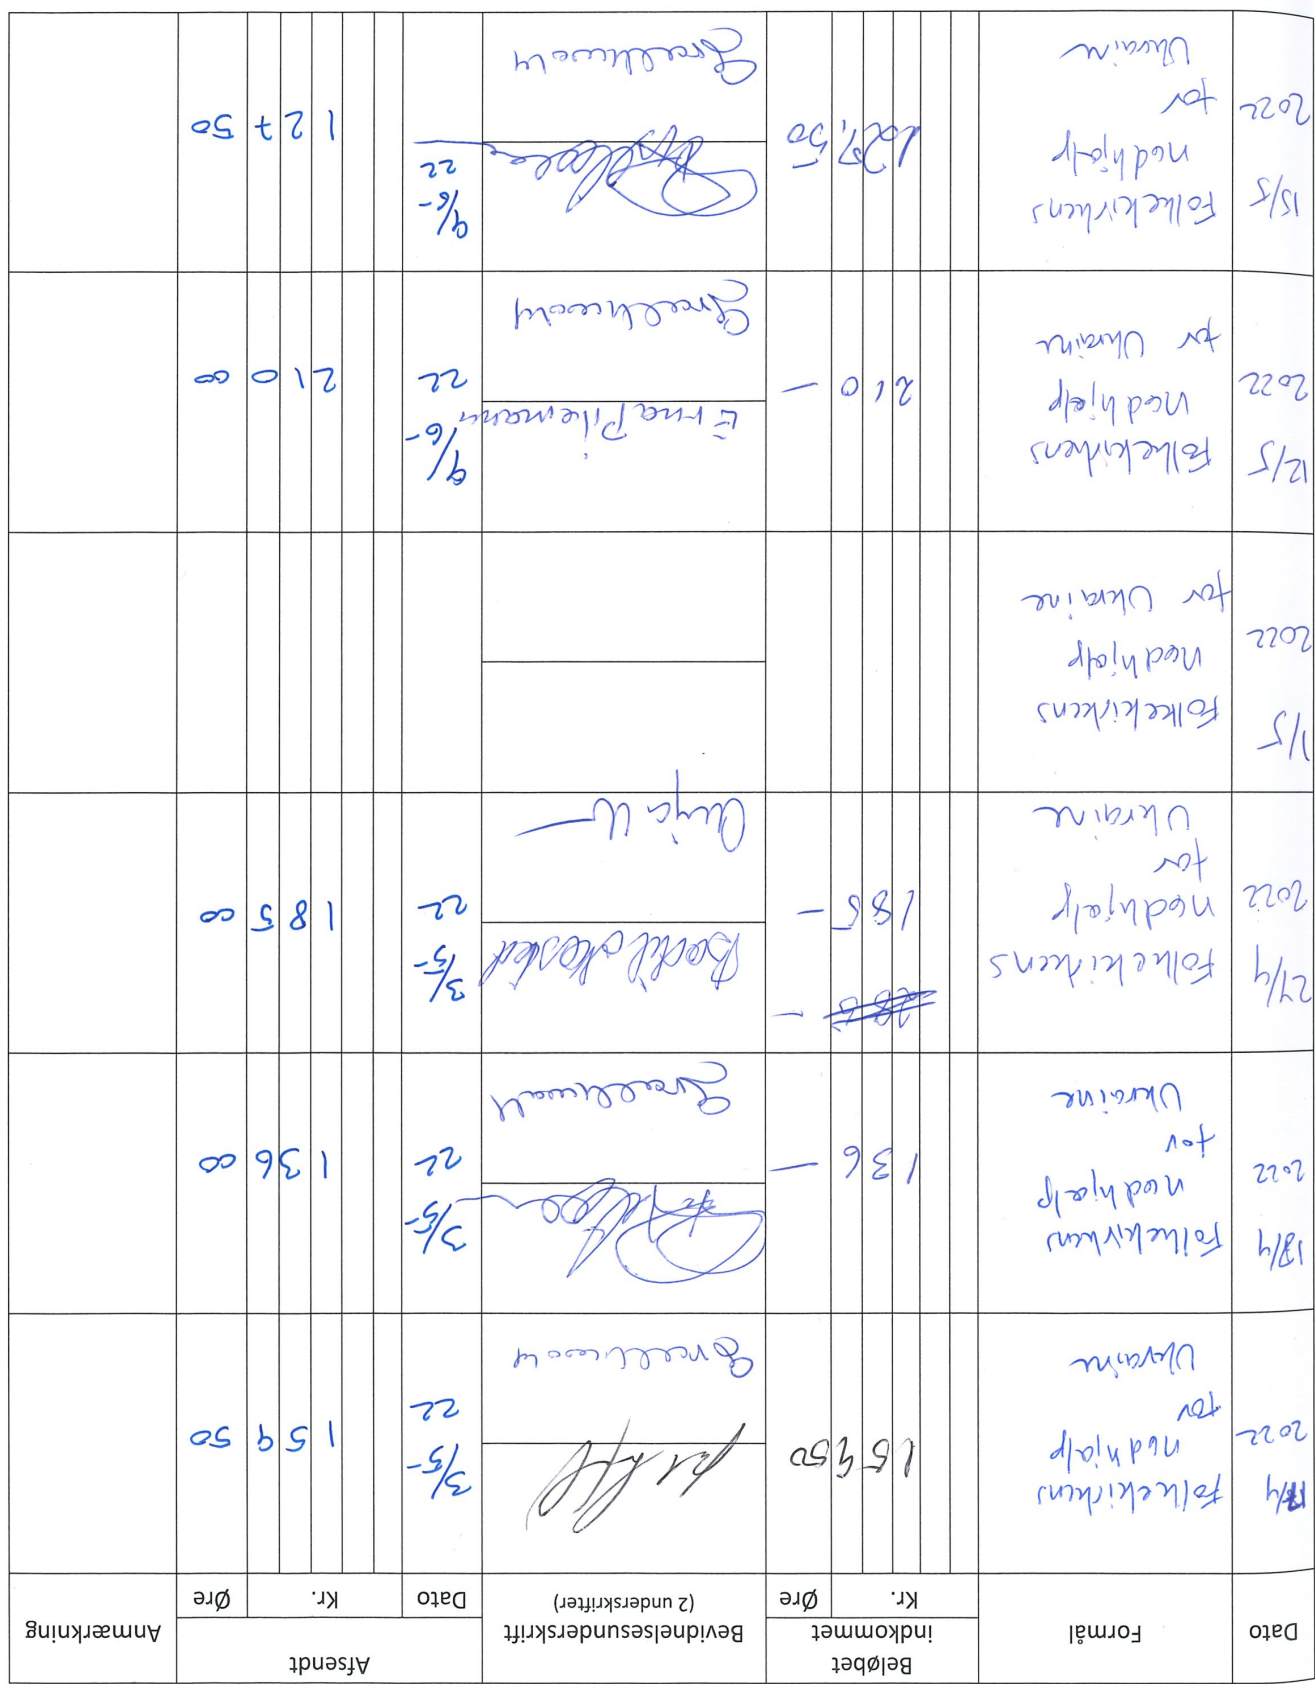 Dato
Formål
Beløbet
indkommet
Kr.
Øre
Bevidnelsesunderskrift
(2 underskrifter)
Afsendt
Dato
Kr.
Øre
Anmærkning
17/4
2022
Folkekirkens
nødhjælp
for
Ukraine
159,50
3/5-
22
159 50
18/4
2022
Folkekirkens
nødhjælp
for
Ukraine
136 —
3/5-
22
136 00
24/4
2022
Folkekirkens
nødhjælp
for
Ukraine
185 —
Bodil
3/5-
22
185 00
1/5
2022
Folkekirkens
nødhjælp
for Ukraine
12/5
2022
Folkekirkens
nødhjælp
for Ukraine
210 —
Erna Pilemann
9/6-
22
210 00
15/5
2022
Folkekirkens
nødhjælp
for
Ukraine
127,50
9/6-
22
127 50